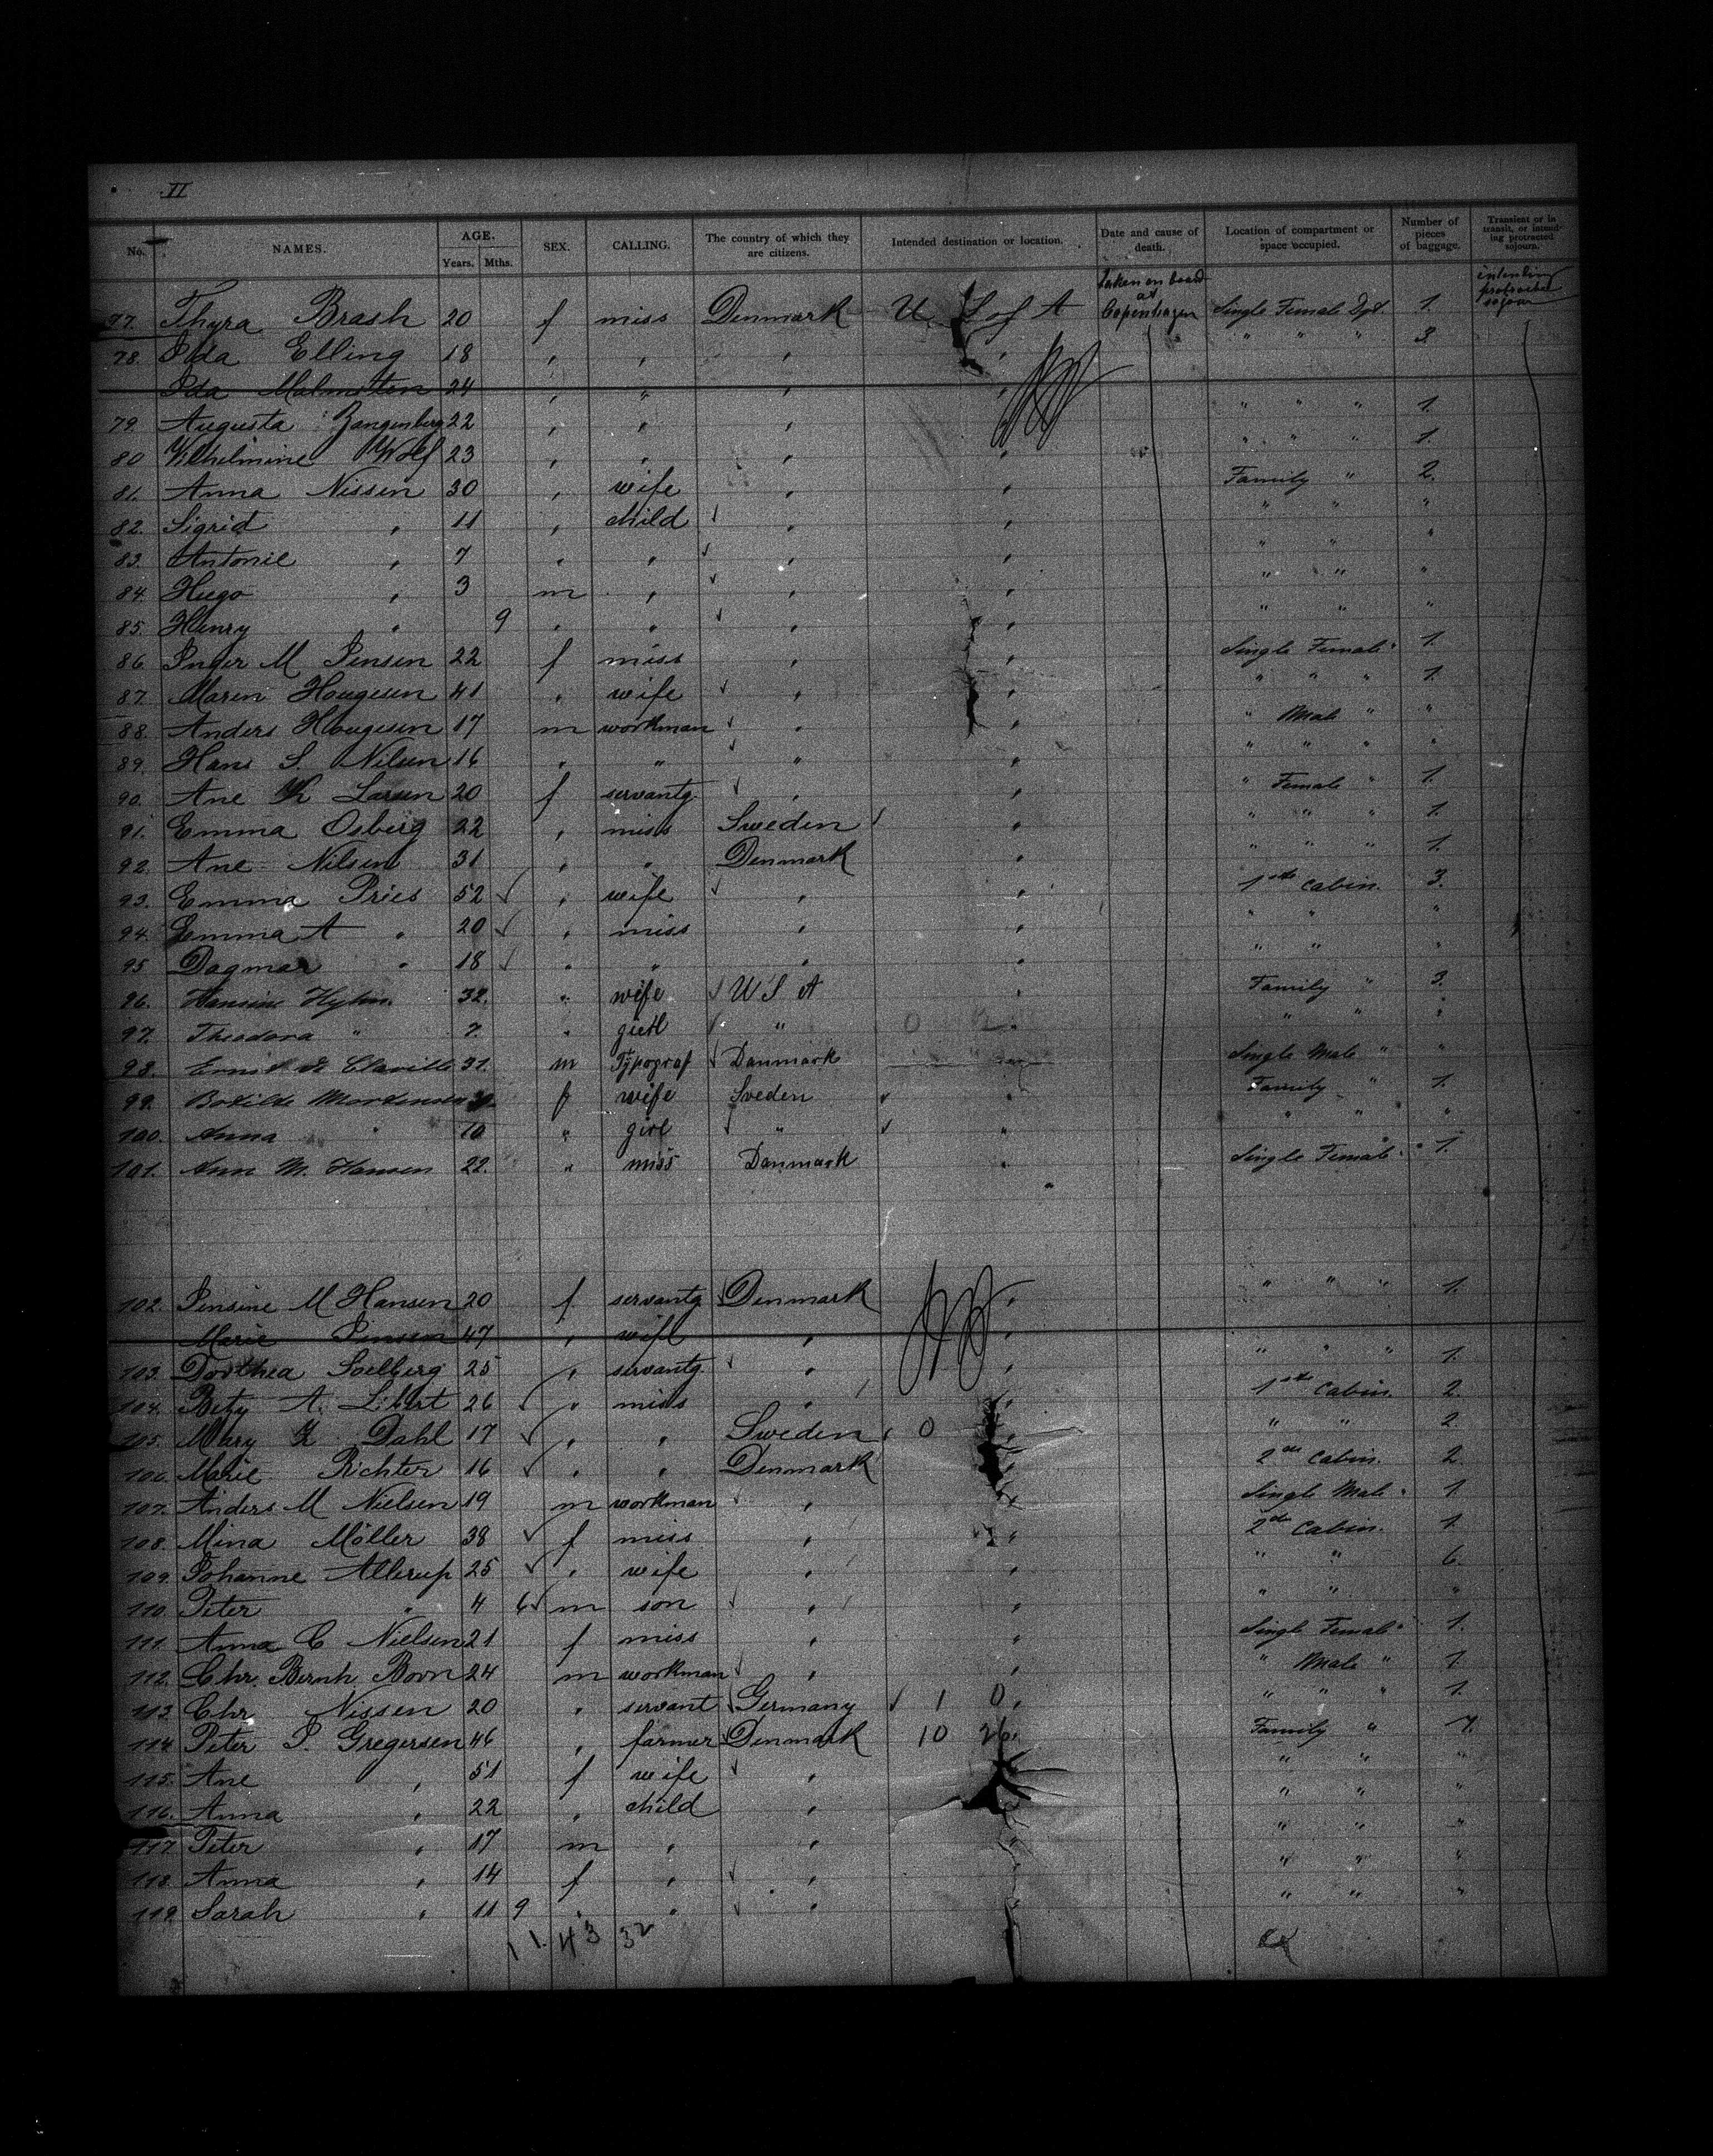 II
No. NAMES. AGE. Years. Mths. SEX. CALLING. The country of which they are citizens. Intended destination or location. Date and cause of death. Location of compartment or space occupied. Number of pieces of baggage. Transient or in transit, or intending protracted sojourn.
77. Thyra Brash 20 f miss Denmark U S of A taken on board at Copenhagen Single Female Dpt. 1. intending protracted sojourn
78. Ida Elling 18 " " " " " " " 3.
Ida Malmsten 24 " " " "
79. Augusta Zangenberg 22 " " " " " " " 1.
80 Vilhelmine Wolf 23 " " " " " " " 1.
81. Anna Nissen 30 " wife " " Family " 2.
82. Sigrid " 11 " child " " " " "
83. Antonie " 7 " " " " " " "
84. Hugo " 3 m " " " " " "
85. Henry " 9 " " " " " " "
86. Inger M Jensen 22 f miss " " Single Female " 1.
87. Maren Hougesen 41 " wife " " " " " 1.
88. Anders Hougesen 17 m workman " " " Male " "
89. Hans S. Nilsen 16 " " " " " " " "
90. Ane K Larsen 20 f servantg. " " " Female " 1.
91. Emma Osberg 22 " miss Sweden " " " " 1.
92. Ane Nilsen 31 " " Denmark " " " " 1.
93. Emma Pries 52 " wife " " 1ste Cabin. 3.
94. Emma A " 20 " miss " " " " "
95 Dagmar " 18 " " " " " " "
96. Hansine 32. " wife U S A " Family " 3.
97. Theodora " 7. " girl " " " " "
98. Ernst de Claville 31. m Typograf Danmark Single Male " "
99. Bothilde Mortensen f wife Sveden " Family " 1.
100. Anna " 10 " girl " " " " "
101. Ann M. Hansen 22. " miss Danmark " Single Female " 1.
102. Jensine M Hansen 20 f. servantg Denmark " " " " 1.
Marie Jensen 47 " wife " "
103. Dorthea Soelberg 25 " servantg. " " " " " 1.
104. Bety A. Libert 26 " miss " " 1ste Cabin. 2.
105. Mary Dahl 17 " " Sweden 0 " " " 2
106. Marie Richter 16 " " Denmark " 2de Cabin. 2.
107. Anders M Nielsen 19 m workman " " Single Male " 1
108. Mina Möller 38 f miss " " 2de Cabin. 1.
109. Johanne Allerup 25 " wife " " " " 6.
110. Peter " 4 6 m son " " " " "
111. Anna C Nielsen 21 f miss " " Single Female " 1.
112. Chr. Bernh. Born 24 m workman " " " Male " 1.
113. Chr Nissen 20 " servant Germany 1 0 " " " " 1.
114. Peter P. Gregersen 46 " farmer Denmark 10 26 " Family " 7.
115. Ane " 51 f wife " " " "
116. Anna " 22 " child " " " "
117. Peter " 17 m " " " " " "
118. Anna " 14 f " " " " "
119. Sarah " 11 9 " " " " " " "
11. 43 32